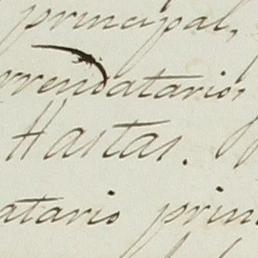 principal,
rrendatarios
Hastas.
atario prin